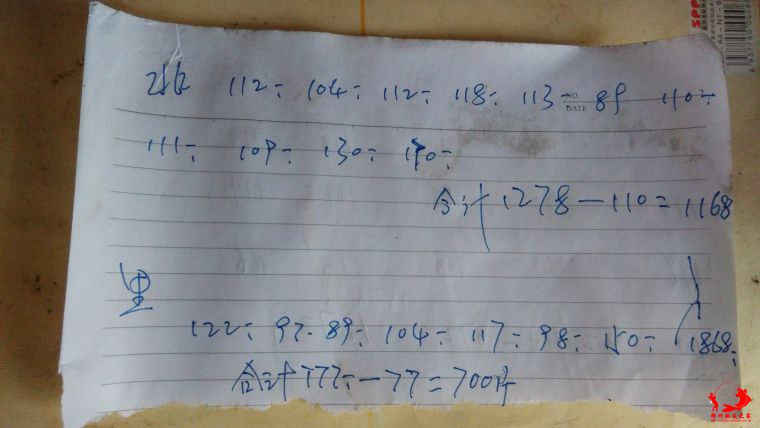 112= 104= 112= 118= 113- 89 110=
NO.
DATE
111= 109= 130= 170=
合计 1278-110=1168
里
122= 97- 89= 104= 117= 98= 150= 1868=
合计 777=-77=700斤